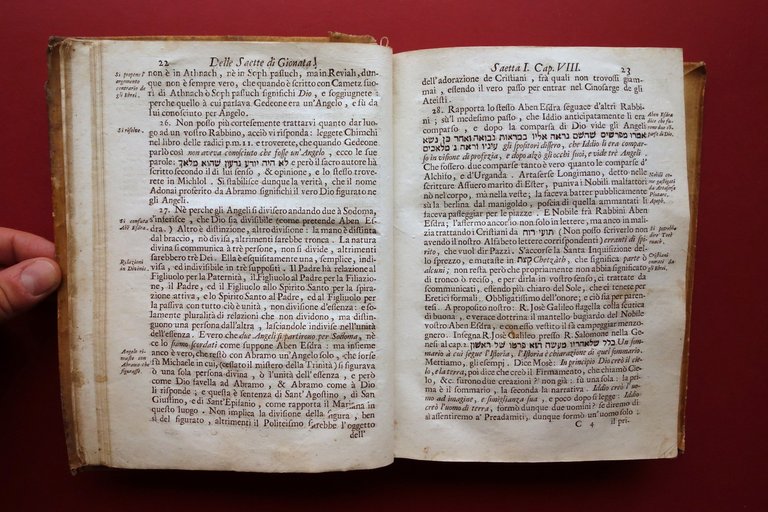 22 Delle Saette di Gionata
Si propone l'
argomento
contrario de
gli Ebrei.
non è in Athnach, nè in Soph passuch, ma in Reviah, dun-
que non è sempre vero, che quando è scritto con Cametz fuo-
ri di Athnach è Soph passuch significhi Dio, e soggiugnete
perche quello à cui parlava Gedeone era un'Angelo, e fù da
lui conosciuto per Angelo.
Si risolve.
26. Non posso più cortesemente trattarvi quanto dar luo-
go ad un vostro Rabbino, acciò vi risponda: leggete Chimchi
nel libro delle radici pm. 11. e troverete, che quando Gedeone
parlò così non aveva conosciuto che fosse un'Angelo, ecco le sue
parole: לא היה יודע גדעון שהוא מלאך e però il sacro autore hà
scritto secondo il di lui senso, e opinione, e lo stesso trove-
rete in Michlol. Si stabilisce dunque la verità, che il nome
Adonai proferito da Abramo significhi il vero Dio figurato ne
gli Angeli.
Si confuta
Abē Esdra.
27. Nè perche gli Angeli si divisero andando due à Sodoma,
s'inferisce, che Dio sia divisibile (come pretende Aben Es-
dra.) Altro è distinzione, altro divisione: la mano è distinta
dal braccio, nò divisa, altrimenti sarebbe tronca. La natura
divina si communica à trè persone, non si divide, altrimenti
sarebbero trè Dei. Ella è squisitamente una, semplice, indi-
visa, ed indivisibile in trè suppositi. Il Padre hà relazione al
Relazioni
in Divinis.
Figliuolo per la Paternità, il Figliuolo al Padre per la Filiazio-
ne, il Padre, ed il Figliuolo allo Spirito Santo per la spira-
zione attiva, e lo Spirito Santo al Padre, ed al Figliuolo per
la passiva con tutto ciò è unità, non divisione d'essenza: es-
samente pluralità di relazioni che non dividono, ma distin-
guono una persona dall'altra, lasciandole indivise nell'unità
dell'essenza. E vero che due Angeli si partirono per Sodoma, nè
Angelo ri-
maste con
Abramo che
figurasse.
ce lo siamo scordati come suppone Aben Esdra: ma insieme
anco è vero, che restò con Abramo un'Angelo solo, che forse
fù Michaele in cui, (cessato il mistero della Trinità) si figurava
ò una sola persona divina, ò l'unità dell'essenza, e però
come Dio favella ad Abramo, & Abramo come à Dio
li risponde; e questa è sentenza di Sant'Agostino, di San
Giustino, e di Sant'Epifanio, come rapporta il Mariana in
questo luogo. Non implica la divisione della figura, ben
sì del figurato, altrimenti il Politeismo sarebbe l'oggetto
dell'
Saetta I. Cap. VIII. 23
dell'adorazione de Cristiani, frà quali non trovossi giam-
mai, essendo il vero passo per entrar nel Cinosarge de gli
Ateisti.
28. Rapporta lo stesso Aben Esdra seguace d'altri Rabbi-
Aben Esdra
dice che fus-
sa comparso
Dio.
ni; sù'l medesimo passo, che Iddio anticipatamente li era
comparso, e dopo la comparsa di Dio vide gli Angeli
אמרו מפרשים שהשם נראה אליו במראות נבואה ואחר כן נשא
עיניו וראה ג מלאכים gli spositori dissero, che Iddio li era compar-
so in visione di profezia, e dopo alzò gli occhi suoi, e vide trè Angeli
Che fossero due comparse tanto è vero quanto le comparse d'
Alchiso, e d'Urganda. Artaserse Longimano, detto nelle
Nobili co-
me castigati
da Artaserse
Plutare.
Apoph.
scritture Assuero marito di Ester, puniva i Nobili malfattori
nò nel corpo, mà nella veste; la faceva batter pubblicamente
sù la berlina dal manigoldo, poscia di quella ammantati li
faceva passeggiar per le piazze. E Nobile frà Rabbini Aben
Esdra; l'affermo ancor'io non solo in lettere, ma anco in mali-
zia trattando i Cristiani da תועי רוח (Non posso scriverlo non
avendo il nostro Alfabeto lettere corrispondenti) erranti di spi-
rito, che vuol dir Pazzi. S'accorse la Santa Inquisizione del-
Cristiani
trattati da
gli Ebrei.
lo sprezzo, e mutaste in קצת che Chetzàth, che significa parte ò
alcuni; non resta però che propriamente non abbia significato
di tronco ò reciso, e per dirla in vostro senso, ci trattate da
scommunicati, essendo chiaro del Sole, che ci tenete per
Eretici formali. Obbligatissimo dell'onore; e ciò sia per paren-
tesi. A proposito nostro: R. Josè Galileo flagella colla scutica
di buona, e verace dottrina il mantello bugiardo del Nobile
vostro Aben Esdra, e con esso vestito il fà campeggiar menzo-
gnero. Insegna R. Josè Galileo presso R. Salomone nella Ge-
nesi al cap. 2 כלל שלאחריו מעשה הוא פרטו של ראשון Un som-
mario à cui segue l'Istoria, l'Istoria è chiarazione di quel sommario.
Mettiamo, gli esempi. Dice Mosè: In principio Dio creò il cie-
lo, e la terra, poi dice che Iddio creò il Firmamento, che chiamò Cie-
lo, &c. furono due creazioni? non già: fù una sola: la pri-
ma è il sommario, la seconda la narrativa. Iddio creò l'uo-
mo ad imagine, e simiglianza sua, e poco dopo si legge: Iddio
creò l'uomo di terra, formò dunque due uomini? se diremo di
sì assentiremo a' Preadamiti, dunque formò un'uomo solo:
C 4 il pri-